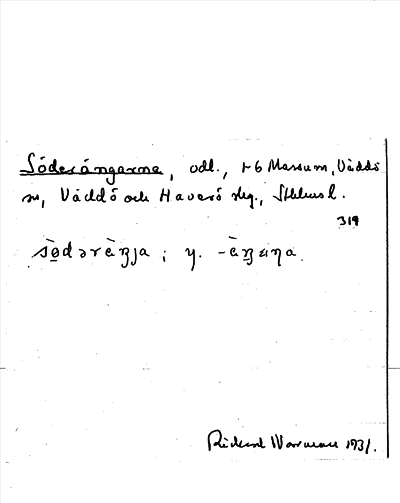 Söderängarna, odl., 1-6 Massum, Väddö
sn, Väddö och Häverö skg., Sthlms l.
319
sö̀dərèŋja ; y. -èŋaɳa
Rickard Wornman 1931.